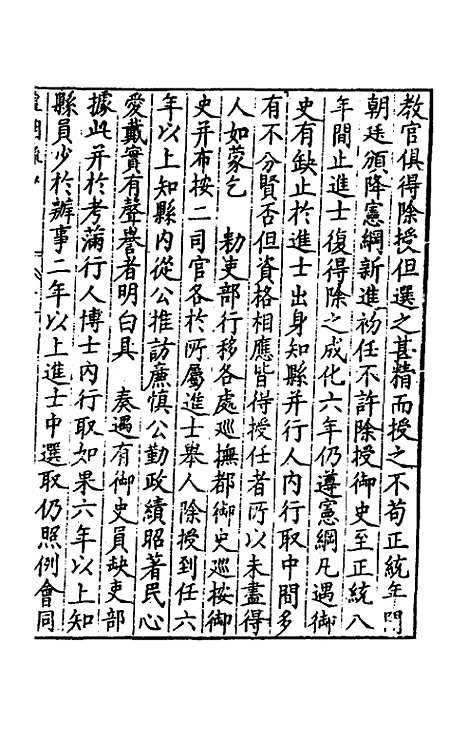 教官俱得除授但選之甚精而授之不苟正統年間
朝廷頒降憲綱新進初任不許除授御史至正統八
年間止進士復得除之成化六年仍遵憲綱凡遇御
史有缺止於進士出身知縣并行人內行取中間多
有不分賢否但資格相應皆得授任者所以未盡得
人如蒙乞　勑吏部行移各處巡撫都御史巡按御
史并布按二司官各於所屬進士舉人除授到任六
年以上知縣內從公推訪廉慎公勤政績昭著民心
愛戴實有聲譽者明白具　奏遇有御史員缺吏部
據此并於考滿行人博士內行取如果六年以上知
縣員少於辦事二年以上進士中選取仍照例會同